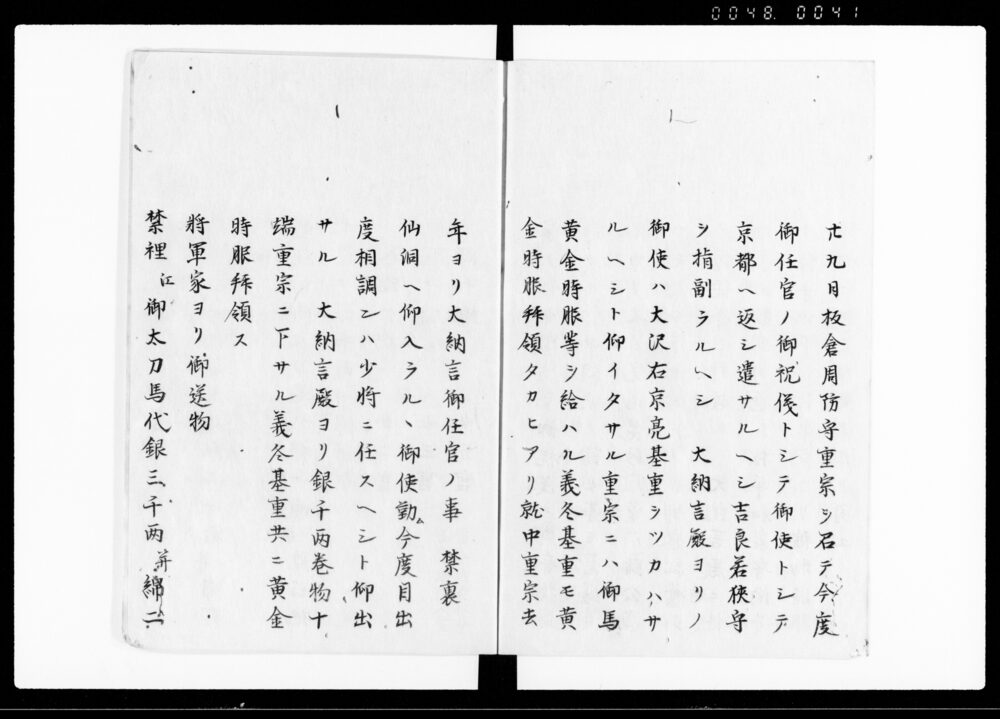 0048. 0041
廿九日板倉周防守重宗ヲ召テ今度
御任官ノ御祝儀トシテ御使トシテ
京都ヘ返シ遣サルヘシ吉良若狭守
ヲ指副ラルヘシ 大納言殿ヨリノ
御使ハ大沢右京亮基重ヲツカハサ
ルヘシト仰イタサル重宗ニハ御馬
黄金時服等ヲ給ハル義冬基重モ黄
金時服拜領タカヒアリ就中重宗去
年ヨリ大納言御任官ノ事 禁裏
仙洞ヘ仰入ラルヽ御使勤ム今度目出
度相調ヒハ少将ニ任スヘシト仰出
サル 大納言殿ヨリ銀千两巻物十
端重宗ニ下サル義冬基重共ニ黄金
時服拜領ス
將軍家ヨリ御送物
禁裡江御太刀馬代銀三千两并綿二